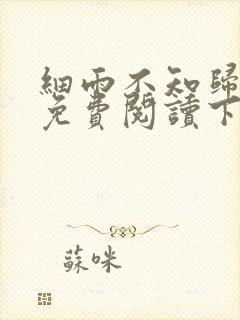 細雨不知歸
免費閱讀下
蘇咪